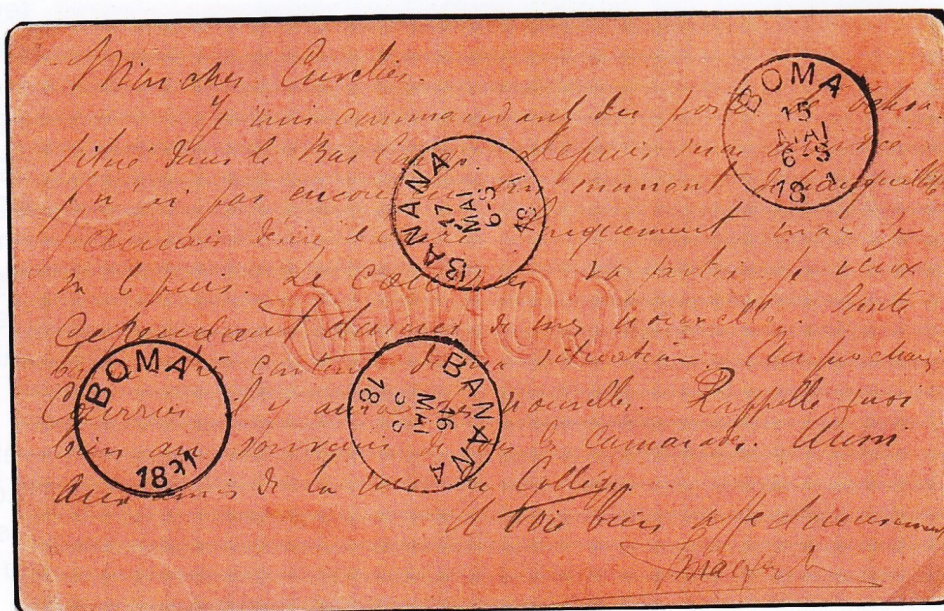 Mon cher Curelier.
Je suis commandant du poste de
situé dans le Bas Congo. Depuis mon
je n'ai pas encore un moment de tranquillité
J'aurais désiré longuement mais je
ne le puis. Le courrier va partir je veux
cependant donner de mes nouvelles. Santé
contente de ma situation. Au prochain
Courrier il y aura des nouvelles. Rappelle moi
bien au souvenir de tous les camarades. Aussi
aux amis de la rue du Collège.
A toi bien affectueusement
BOMA
15
MAI
6-S
18 1
BANANA
17
MAI
6-S
18
CONGO
BOMA
1891
BANANA
16
MAI
18